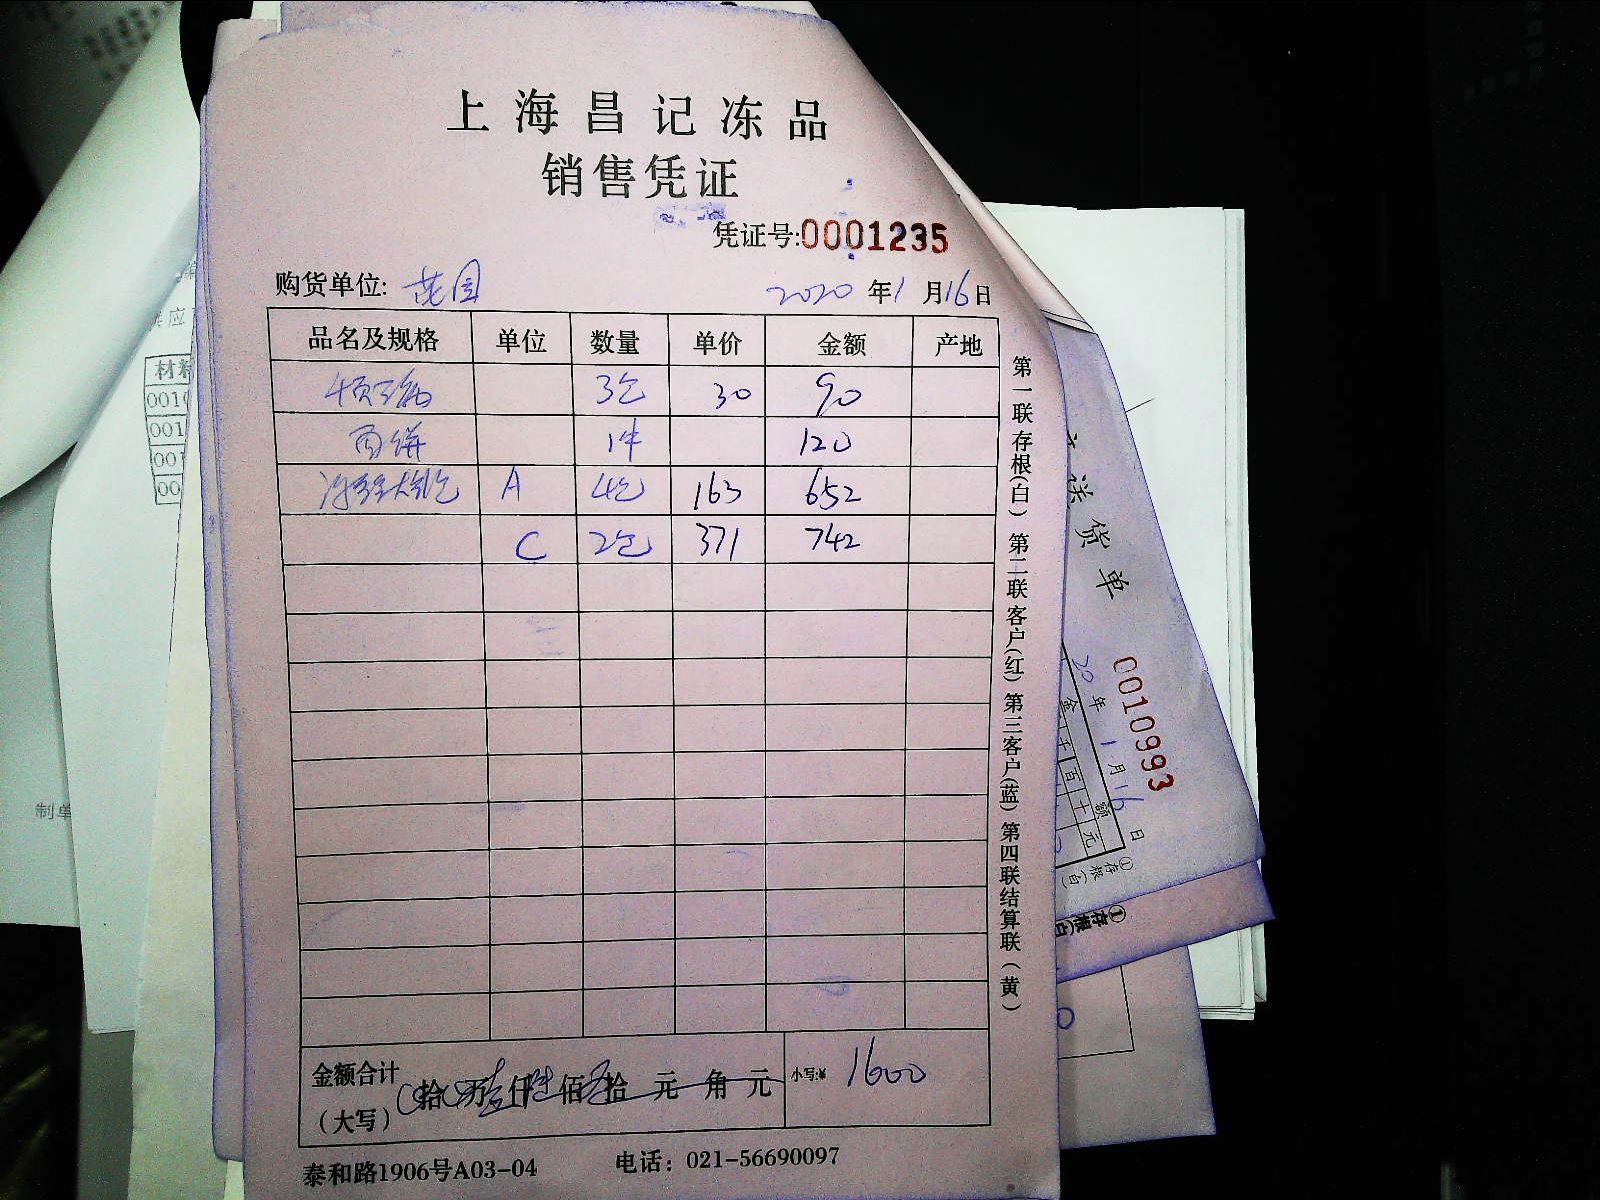 上海昌记冻品
销售凭证
凭证号:0001235
购货单位: 花园 2020年1月16日
品名及规格 单位 数量 单价 金额 产地
3包 30 90
1件 120
A 4包 163 652
C 2包 371 742
金额合计
(大写)
拾 万 仟 佰 拾 元 角 元 小写:¥ 1600
泰和路1906号A03-04 电话：021-56690097
第一联存根(白) 第二联客户(红) 第三客户(蓝) 第四联结算联(黄)
送货单
0010993
20年1月16日
金额
千百十元
①存根(白)
①存根(白)
材料
001
001
001
00
供应
制单